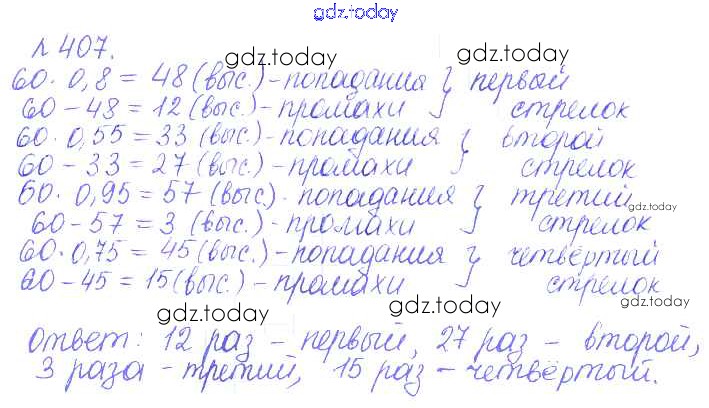 gdz.today
№ 407.
gdz.today
gdz.today
60 · 0,8 = 48 (выс.) - попадания } первый
60 - 48 = 12 (выс.) - промахи } стрелок
60 · 0,55 = 33 (выс.) - попадания } второй
60 - 33 = 27 (выс.) - промахи } стрелок
60 · 0,95 = 57 (выс.) - попадания } третий
gdz.today
60 - 57 = 3 (выс.) - промахи } стрелок
60 · 0,75 = 45 (выс.) - попадания } четвёртый
60 - 45 = 15 (выс.) - промахи } стрелок
gdz.today
gdz.today
gdz.today
Ответ: 12 раз - первый, 27 раз - второй,
3 раза - третий, 15 раз - четвёртый.
gdz.today